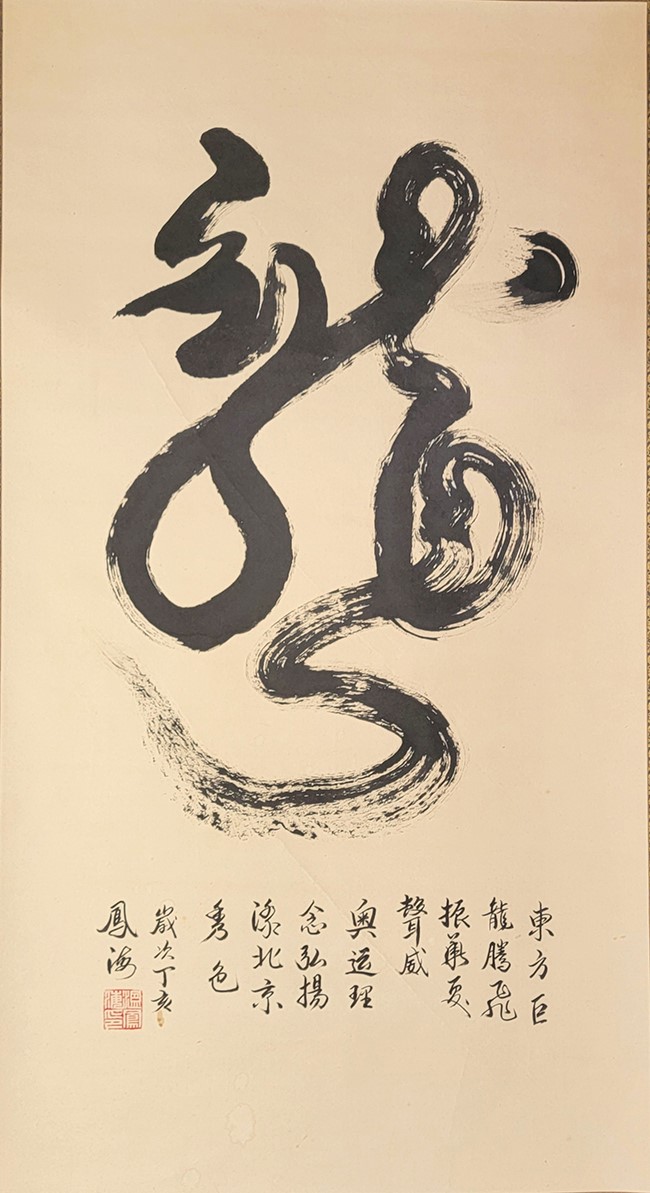 龍
東方巨
龍騰飛
振華夏
聲威
奧运理
念弘揚
添北京
秀色
歲次丁亥
鳳海